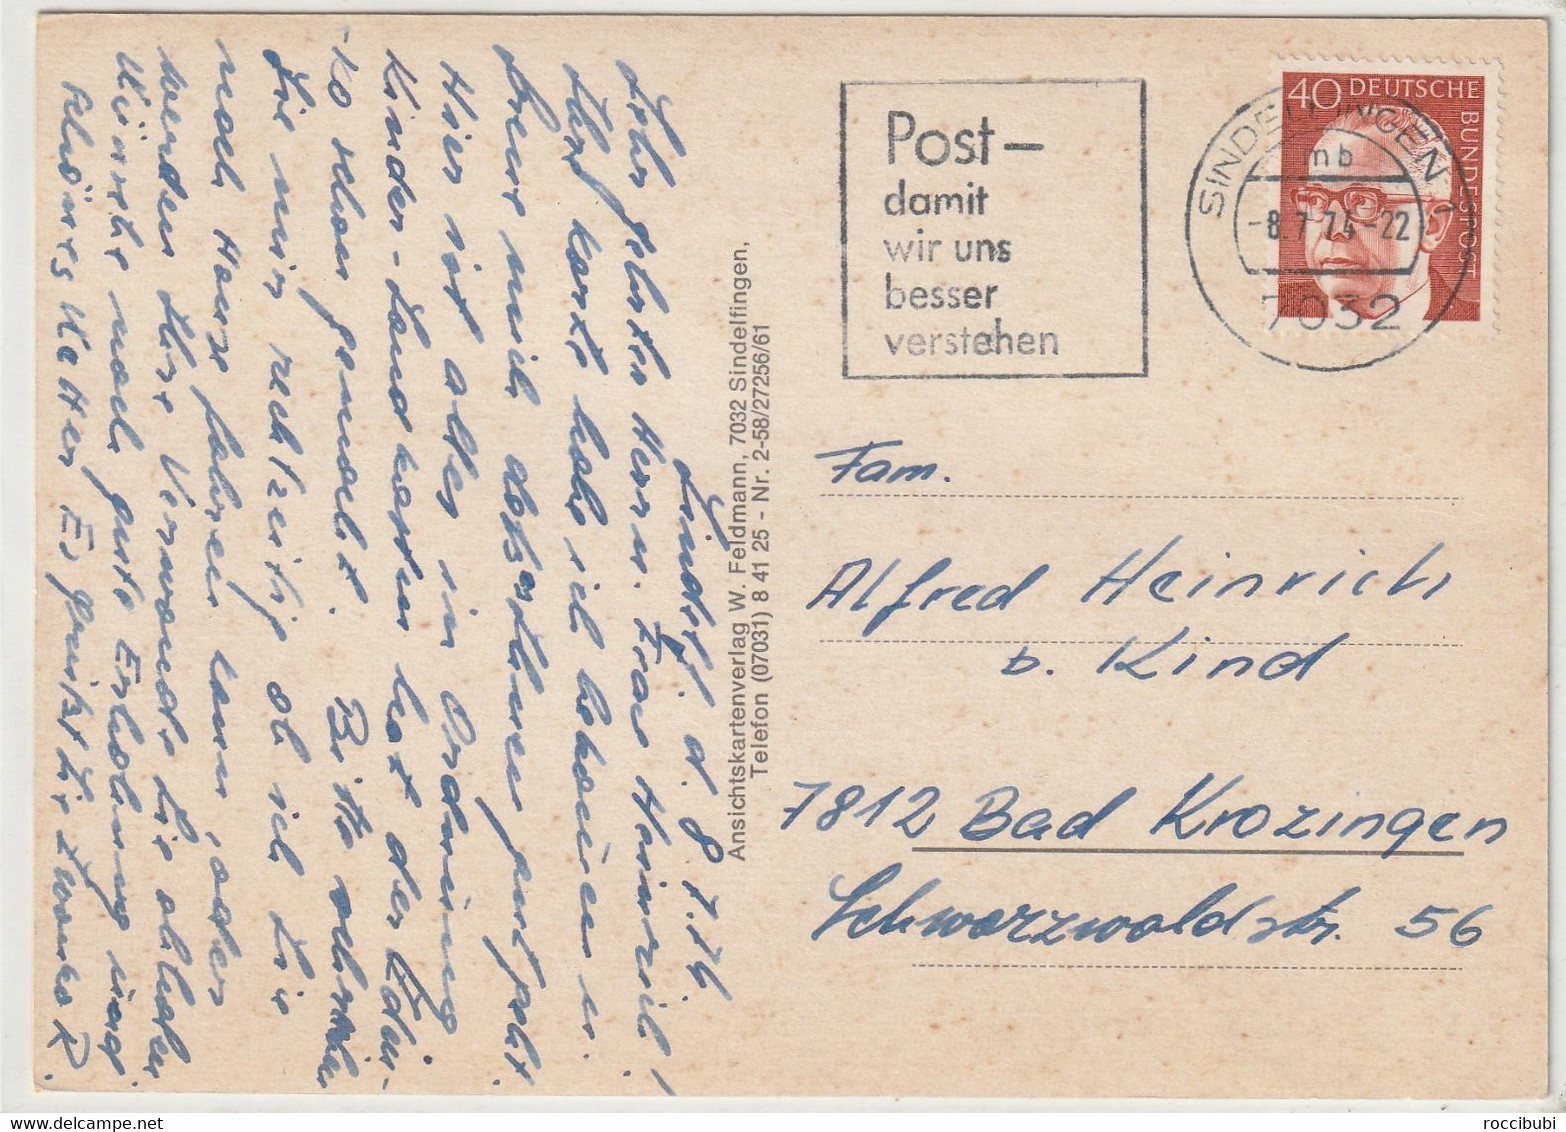 Sindelf. d. 8.7.74.
Sehr geehrter Herr u. Frau Heinrich!
Ihre Karte habe ich bekommen u.
freue mich, daß es Ihnen gut geht.
Hier ist alles in Ordnung
Kinder-Landkarten hat der Edu-
ko schon gemacht. Bitte schreiben
Sie mir rechtzeitig ob ich Sie
nach Hause fahren kann, oder
werden Ihre Verwandte Sie abholen.
Wünsche noch gute Erholung und
schönes Wetter Es grüßt Sie
Ansichtskartenverlag W. Feldmann, 7032 Sindelfingen,
Telefon (07031) 8 41 25 - Nr. 2-58/27256/61
Post –
damit
wir uns
besser
verstehen
SINDELFINGEN 1
mb
-8.7.74-22
7032
40 DEUTSCHE
BUNDESPOST
Fam.
Alfred Heinrich
b. Kind
7812 Bad Krozingen
Schwarzwaldstr. 56
roccibubi